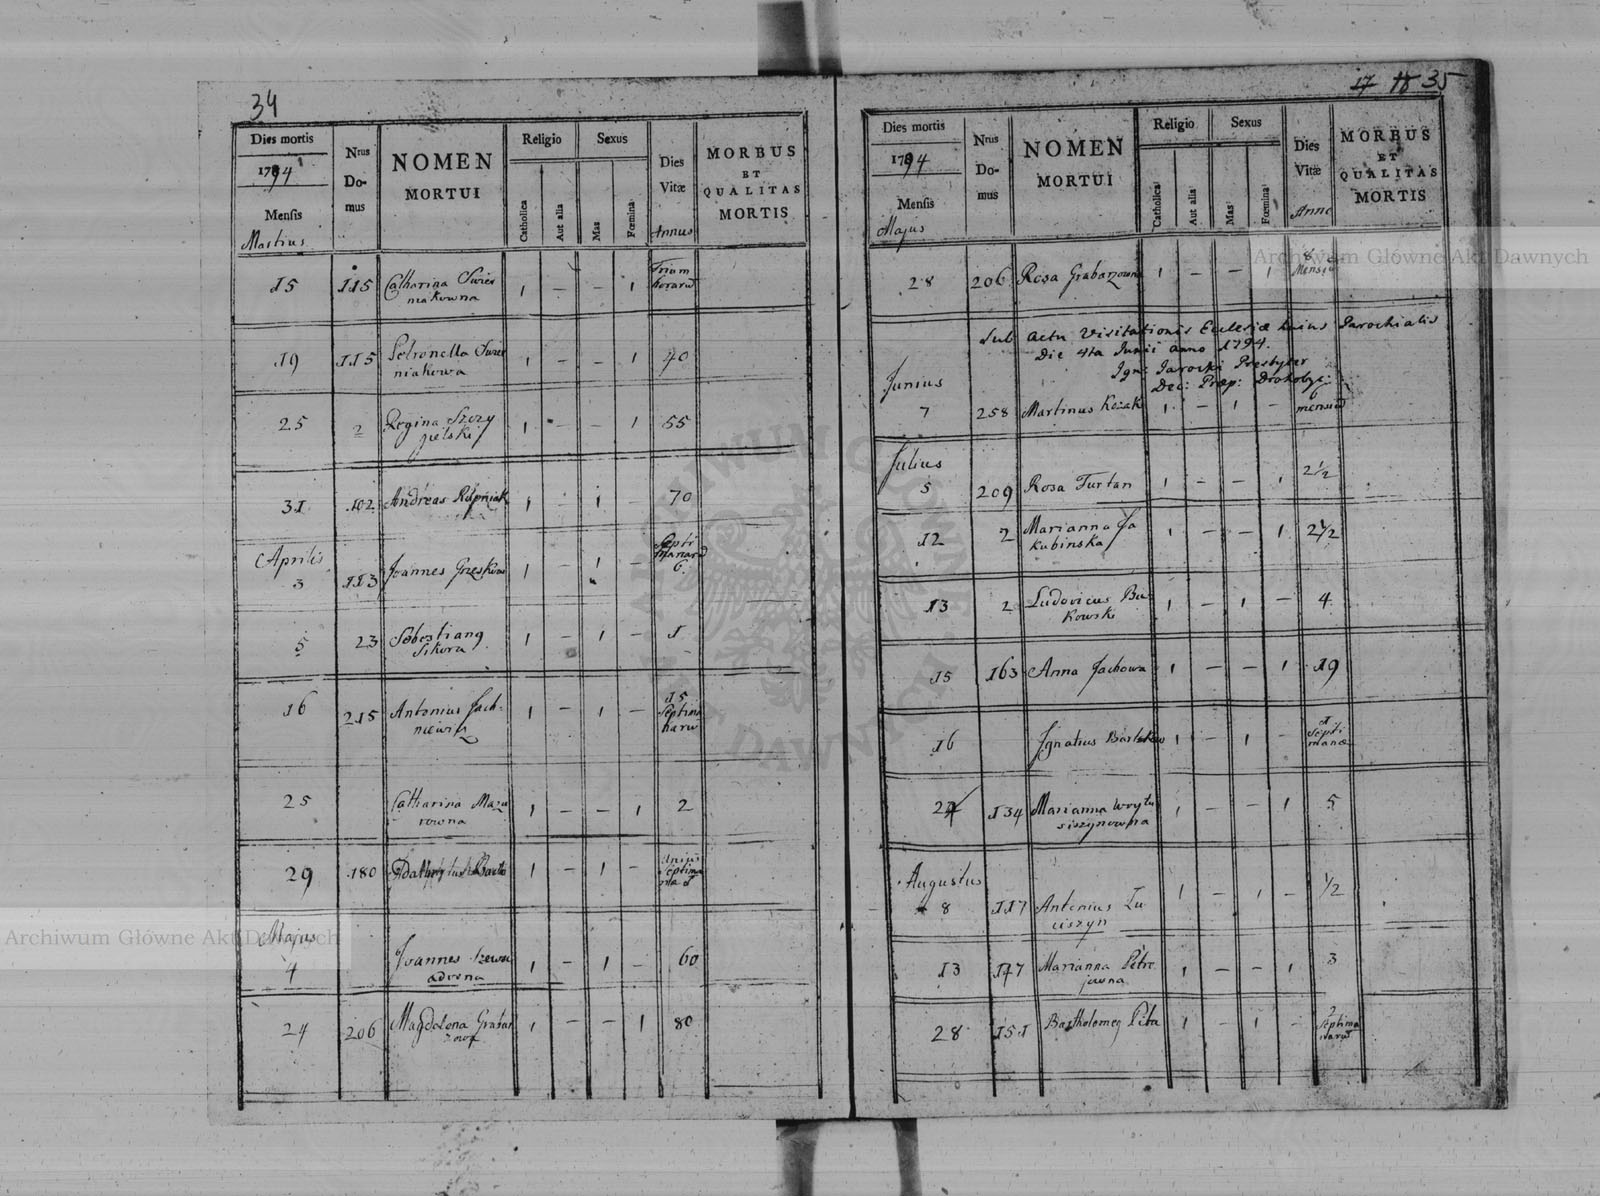 34
Dies mortis
1794
Mensis
Martius
Nrus Do- mus
NOMEN
MORTUI
Religio
Catholica
Aut alia
Sexus
Mas
Fœmina
Dies Vitæ
Annus
MORBUS
ET
QUALITAS
MORTIS
15 115 Catharina Swier 1 – – 1 Trium
niakowna horarum
19 115 Petronella Swier 1 – – 1 40
niakowa
25 2 Regina Szczy 1 – – 1 55
pielski
31 102 Andreas Rupniak 1 – 1 – 70
Aprilis
3 113 Joannes 1 – 1 – 6
5 23 Sebestianq 1 – 1 – 1
Sikora
16 215 Antonius Jach- 1 – 1 – 15
niewicz Septima
narum
25 Catharina Mazu 1 – – 1 2
rowna
29 180 1 – 1 – unius
Septima
Majus
4 Joannes 1 – 1 – 60
advena
24 206 Magdalena Grabar 1 – – 1 80
17 18 35
Dies mortis
1794
Mensis
Majus
Nrus Do- mus
NOMEN
MORTUI
Religio
Catholica
Aut alia
Sexus
Mas
Fœmina
Dies Vitæ
Anno
MORBUS
ET
QUALITAS
MORTIS
28 206 Rosa Grabarzowna 1 – – 1 8
Mensium
Sub actu Visitationis Eclesiæ huius Parochialis
Die 4ta Junii anno 1794.
Ign: Jarocki Presbyter
Dec: Præp: Drohobyc:
Junius
7 258 Martinus Kozak 1 – 1 – mensium
Julius
5 209 Rosa Furtan 1 – – 1 2½
12 2 Marianna Ja 1 – – 1 2½
kubinska
13 2 Ludovicus Bu 1 – 1 – 4
kowski
15 163 Anna Jachowa 1 – – 1 19
16 Ignatius 1 – 1 – Septi
manæ
24 134 Marianna Woytu 1 – – 1 5
siszynowna
Augustus
8 117 Antonius Lu 1 – 1 – ½
ciszyn
13 177 Marianna Petre 1 – – 1 3
jowna
28 151 Bartholomeq Petra 1 – 1 – 2
Septima
narum
Archiwum Główne Akt Dawnych
Archiwum Główne Akt Dawnych
ARCHIWUM GŁÓWNE AKT DAWNYCH